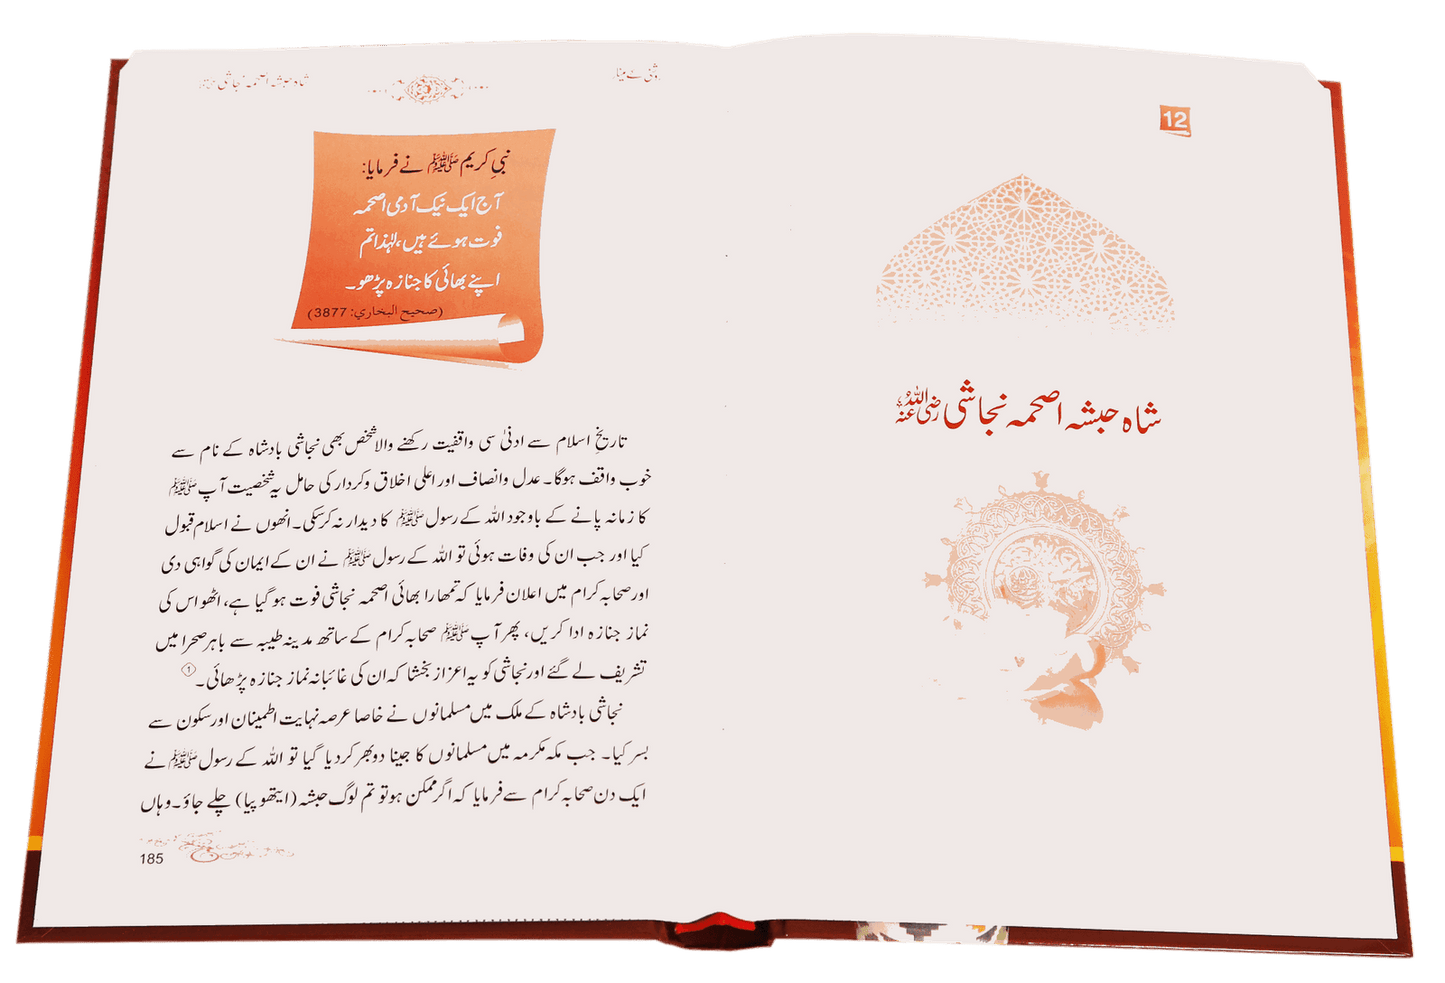 12
شاہ حبشہ اصحمہ نجاشی رضی اللہ عنہ
شاہ حبشہ اصحمہ نجاشی
روشنی کے مینار
نبیِ کریم ﷺ نے فرمایا:
آج ایک نیک آدمی اصحمہ
فوت ہوئے ہیں، لہٰذا تم
اپنے بھائی کا جنازہ پڑھو۔
(صحیح البخاري: 3877)
تاریخِ اسلام سے ادنیٰ سی واقفیت رکھنے والا شخص بھی نجاشی بادشاہ کے نام سے
خوب واقف ہوگا۔ عدل وانصاف اور اعلی اخلاق وکردار کی حامل یہ شخصیت آپ ﷺ
کا زمانہ پانے کے باوجود اللہ کے رسول ﷺ کا دیدار نہ کرسکی۔ انھوں نے اسلام قبول
کیا اور جب ان کی وفات ہوئی تو اللہ کے رسول ﷺ نے ان کے ایمان کی گواہی دی
اور صحابہ کرام میں اعلان فرمایا کہ تمھارا بھائی اصحمہ نجاشی فوت ہو گیا ہے، اٹھو اس کی
نماز جنازہ ادا کریں، پھر آپ ﷺ صحابہ کرام کے ساتھ مدینہ طیبہ سے باہر صحرا میں
تشریف لے گئے اور نجاشی کو یہ اعزاز بخشا کہ ان کی غائبانہ نماز جنازہ پڑھائی۔ ①
نجاشی بادشاہ کے ملک میں مسلمانوں نے خاصا عرصہ نہایت اطمینان اور سکون سے
بسر کیا۔ جب مکہ مکرمہ میں مسلمانوں کا جینا دوبھر کر دیا گیا تو اللہ کے رسول ﷺ نے
ایک دن صحابہ کرام سے فرمایا کہ اگر ممکن ہو تو تم لوگ حبشہ (ایتھوپیا) چلے جاؤ۔ وہاں
185